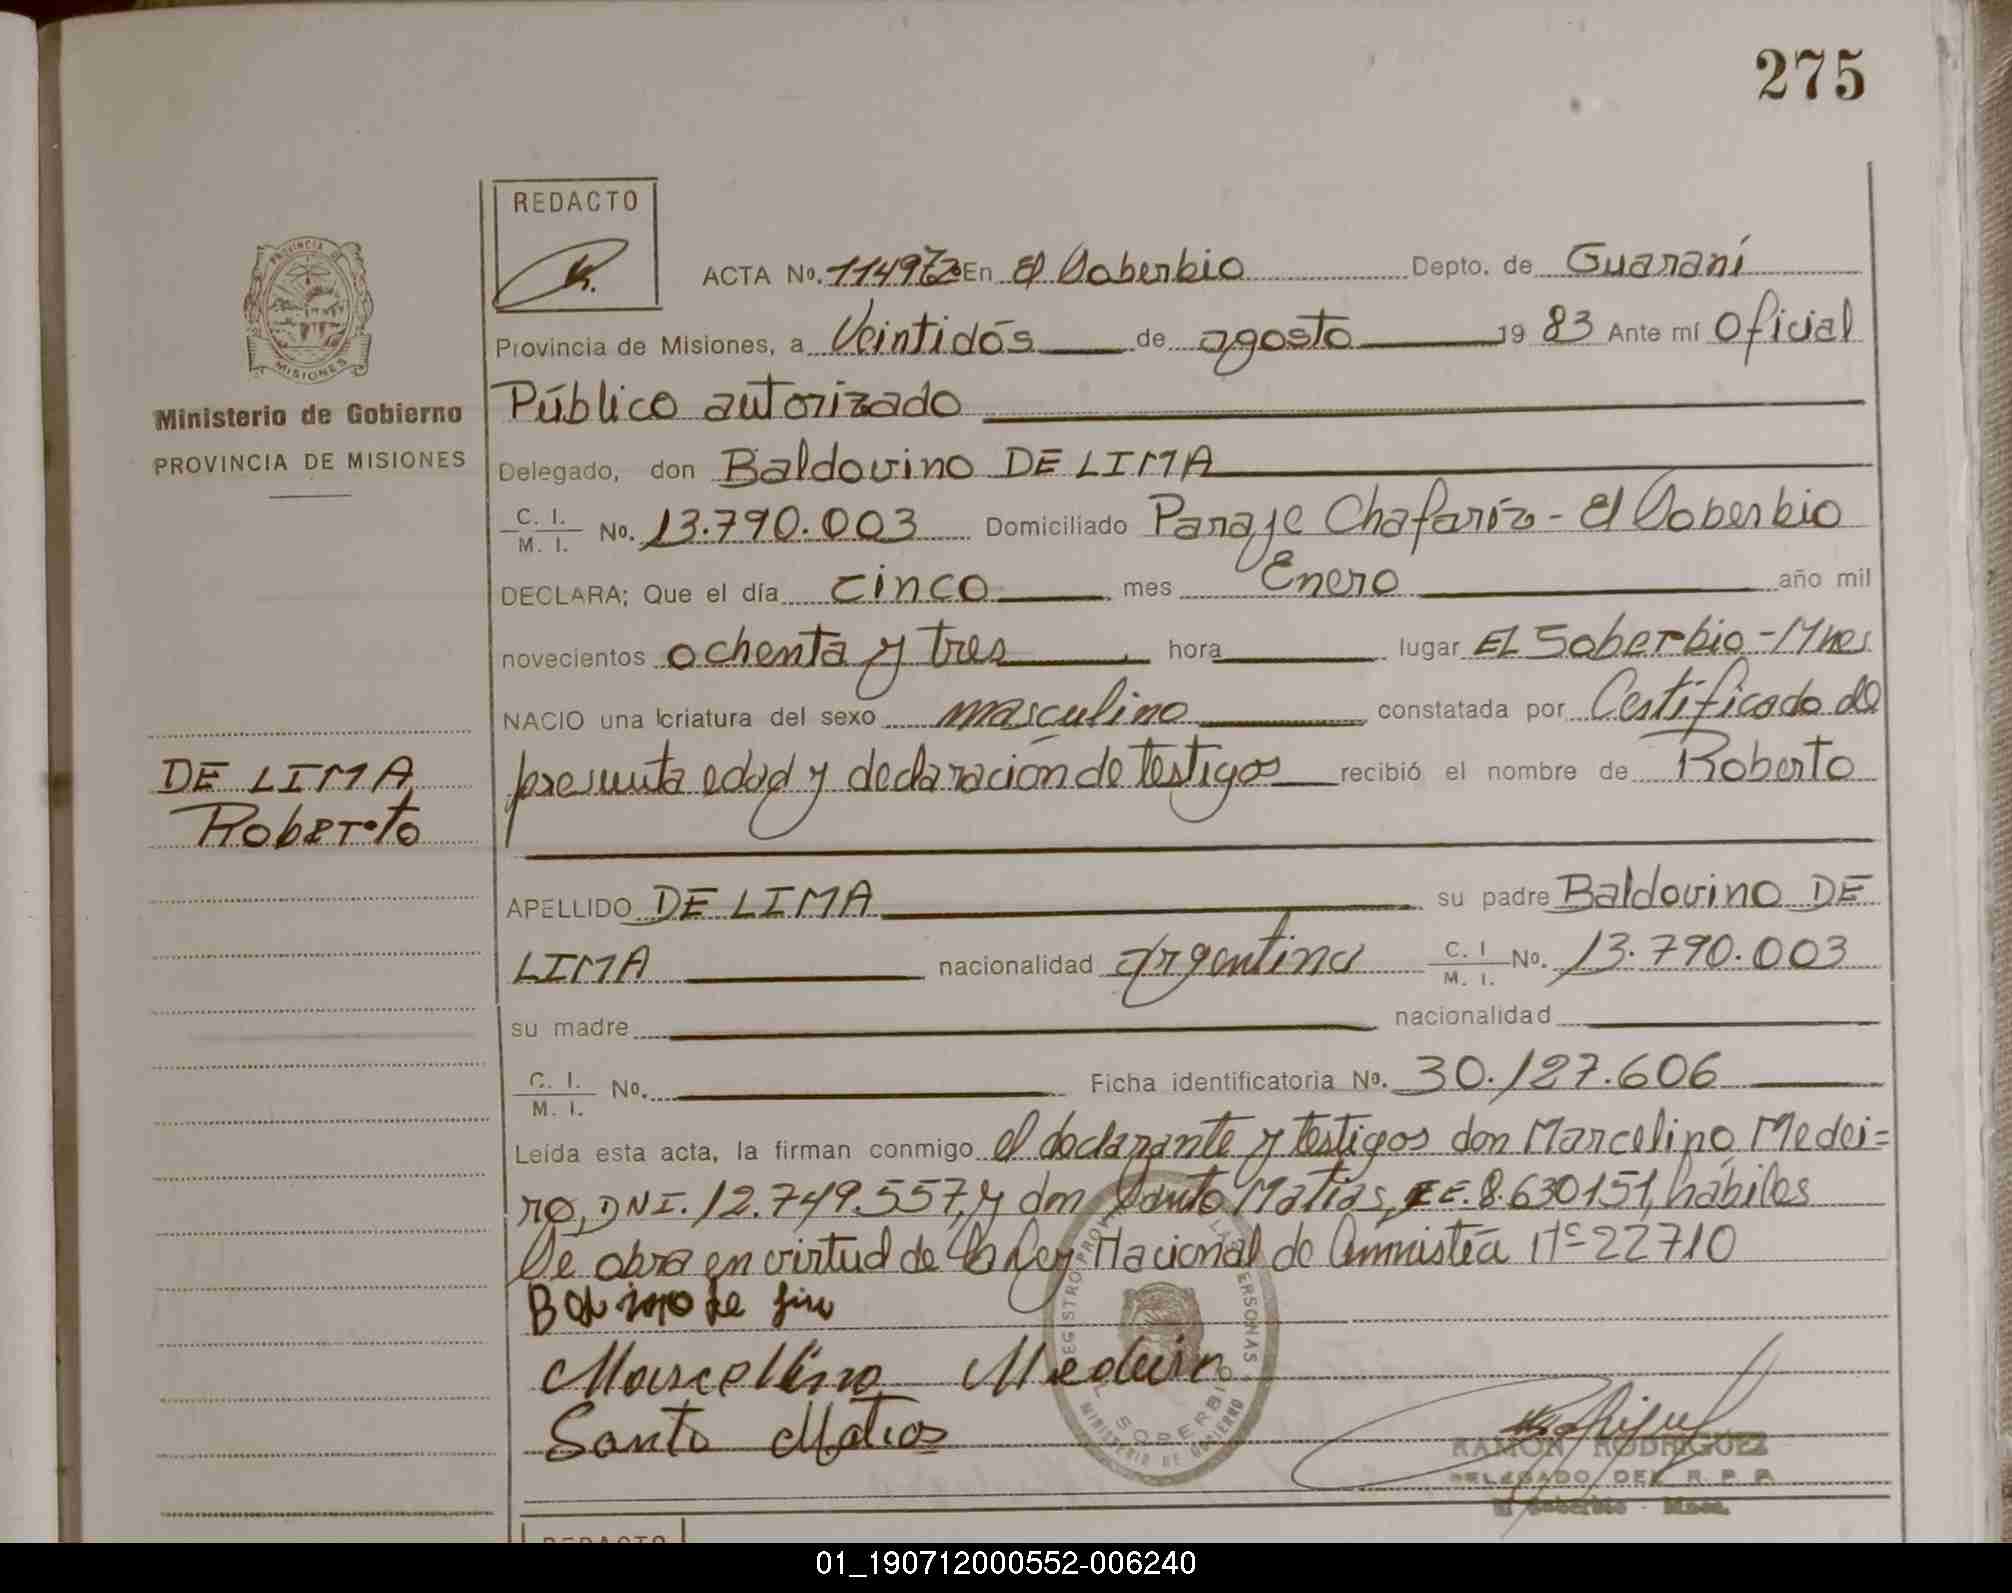 275
REDACTO
PROVINCIA
MISIONES
Ministerio de Gobierno
PROVINCIA DE MISIONES
ACTA No. En El Soberbio Depto. de Guaraní
Provincia de Misiones, a Veintidós de agosto 19 83 Ante mí Oficial
Público autorizado
Delegado, don Baldovino DE LIMA
C. I. / M. I. No. 13.790.003 Domiciliado Paraje Chafaríz - El Soberbio
DECLARA; Que el día cinco mes Enero año mil
novecientos ochenta y tres hora lugar EL Soberbio - Mnes.
NACIO una criatura del sexo masculino constatada por Certificado de
presunta edad y declaración de testigos recibió el nombre de Roberto
DE LIMA,
Roberto
APELLIDO DE LIMA su padre Baldovino DE
LIMA nacionalidad argentina C. I / M. I. No. 13.790.003
su madre nacionalidad
C. I. / M. I. No. Ficha identificatoria No. 30.127.606
Leída esta acta, la firman conmigo el declarante y testigos don Marcelino Medei=
ro, DNI. 12.749.557, y don Santo Matias, 8.630151, hábiles
Se obra en virtud de la Ley Nacional de Amnistía Nº 22710
Marcellino
Santo Matias
REGISTRO PROV. LAS PERSONAS
SOBERBIO
MINISTERIO DE GOBIERNO
RAMON RODRIGUEZ
DELEGADO DEL R. P. P.
El Soberbio - Mnes.
REDACTO
01_190712000552-006240